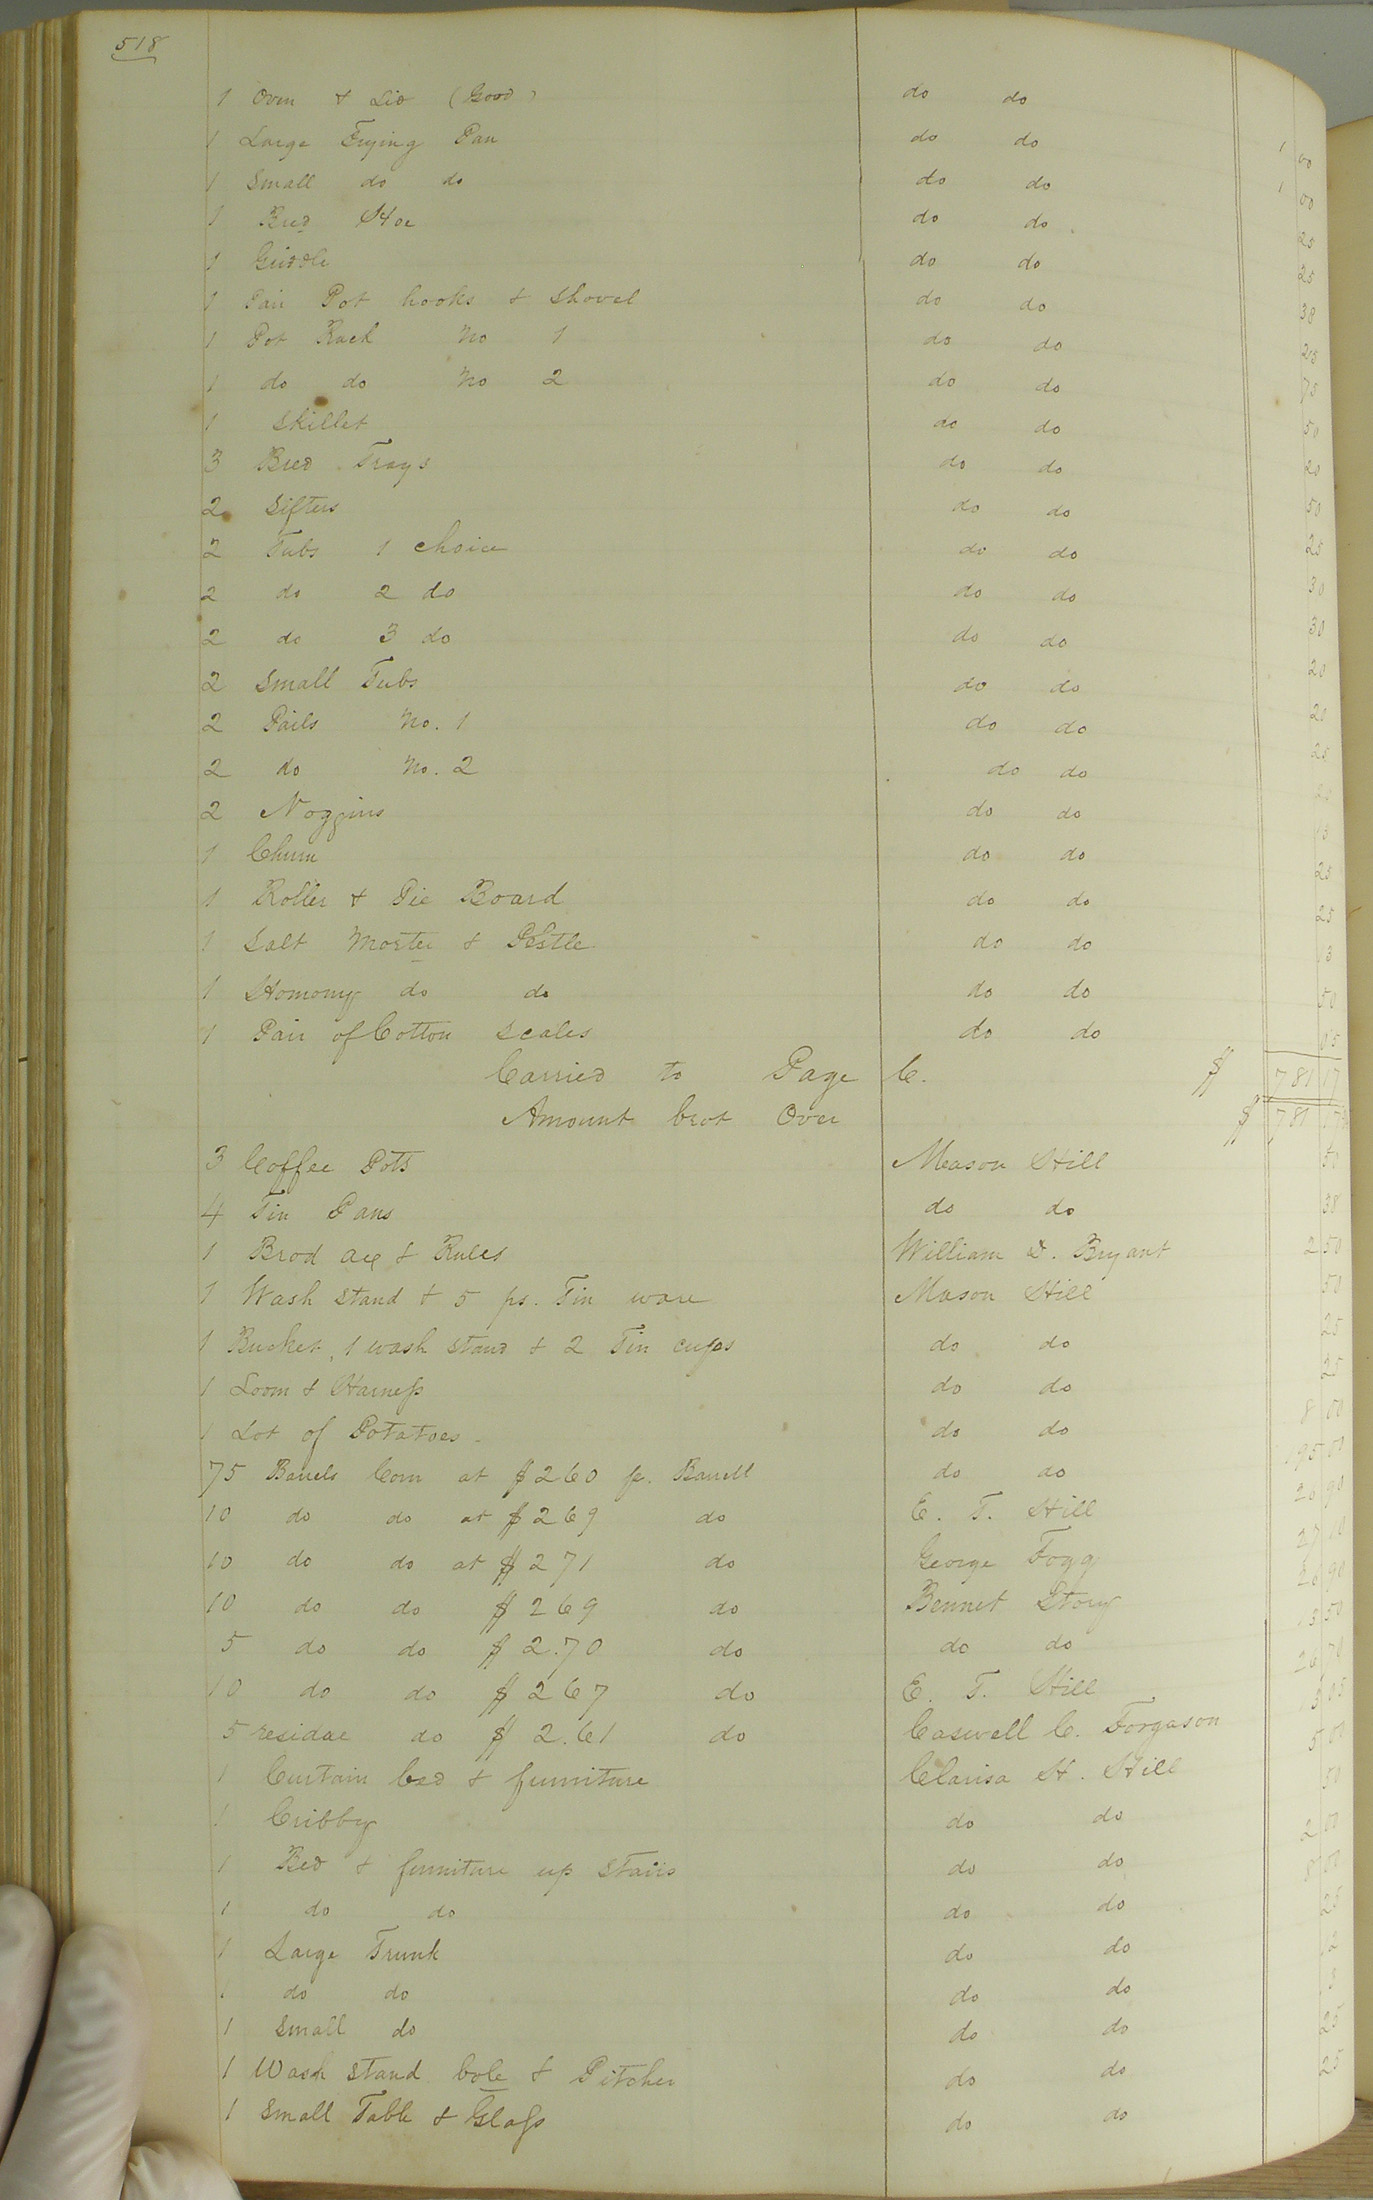 518
1 Oven & Lid (Good) do do 1 00
1 Large Frying Pan do do 1 00
1 Small do do do do 25
1 Bred Hoe do do 25
1 Griddle do do 38
1 Pair Pot hooks & Shovel do do 25
1 Pot Rack No 1 do do 75
1 do do No 2 do do 50
1 Skillet do do 20
3 Bred Trays do do 50
2 Sifters do do 25
2 Tubs 1 choice do do 30
2 do 2 do do do 30
2 do 3 do do do 20
2 Small Tubs do do 20
2 Pails No. 1 do do 25
2 do No. 2 do do
2 Noggins do do
1 Churn do do 25
1 Roller & Pie Board do do 25
1 Salt Morter & Pestle do do
1 Homony do do do do 50
1 Pair of Cotton Scales do do
Carried to Page C. $ 781 17
Amount brot Over $ 781 17
3 Coffee Pots Meason Hill 50
4 Tin Pans do do 38
1 Brod axe & Rules William D. Bryant 2 50
1 Wash Stand & 5 ps. Tin ware Mason Hill 50
1 Bucket, 1 wash stand & 2 Tin cups do do 25
1 Loom & Harness do do 25
1 Lot of Potatoes do do 8 00
75 Barrels Corn at $2 60 pr. Barrell do do 195 00
10 do do at $2 69 do E. T. Hill 26 90
10 do do at $2 71 do George Fogg 27 10
10 do do $2 69 do Bennet Story 26 90
5 do do $2.70 do do do 13 50
10 do do $2 67 do E. T. Hill 26 70
5 residue do $2.61 do Caswell C. Forgason
1 Curtain bed & furniture Clarisa H. Hill 5 00
1 Cribby do do 50
1 Bed & furniture up Stairs do do 2 00
1 do do do do 8 00
1 Large Trunk do do 25
1 do do do do
1 Small do do do
1 Wash stand bole & Pitcher do do 25
1 Small Table & Glass do do 25